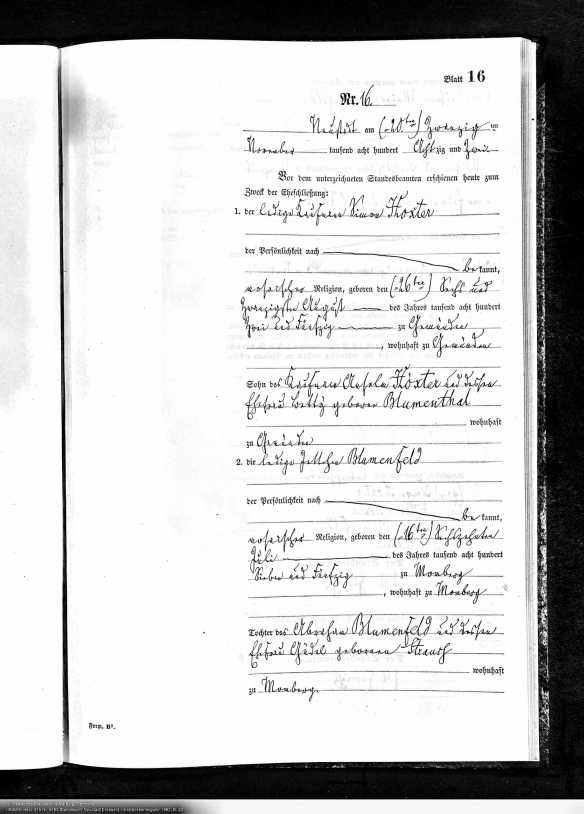 Blatt 16
Nr. 16.
Neustadt am (20. ten) Zwanzig ten
November tausend acht hundert Achtzig und Zwei
Vor dem unterzeichneten Standesbeamten erschienen heute zum
Zweck der Eheschließung:
1. der ledige Kaufmann Simon Höxter
der Persönlichkeit nach
be kannt,
mosaischer Religion, geboren den (26 ten) Sechs und
Zwanzigsten August des Jahres tausend acht hundert
Zwei und Fünfzig zu Gemünden
, wohnhaft zu Gemünden
Sohn des Kaufmann Anselm Höxter und dessen
Ehefrau Betty geborene Blumenthal
wohnhaft
zu Gemünden
2. die ledige Jettchen Blumenfeld
der Persönlichkeit nach
be kannt,
mosaischer Religion, geboren den (16 ten) Sechszehnten
Juli des Jahres tausend acht hundert
Sieben und Fünfzig zu Momberg
, wohnhaft zu Momberg
Tochter des Abraham Blumenfeld und dessen
Ehefrau Güdel geborenen Strauß
wohnhaft
zu Momberg.
Form. B¹.